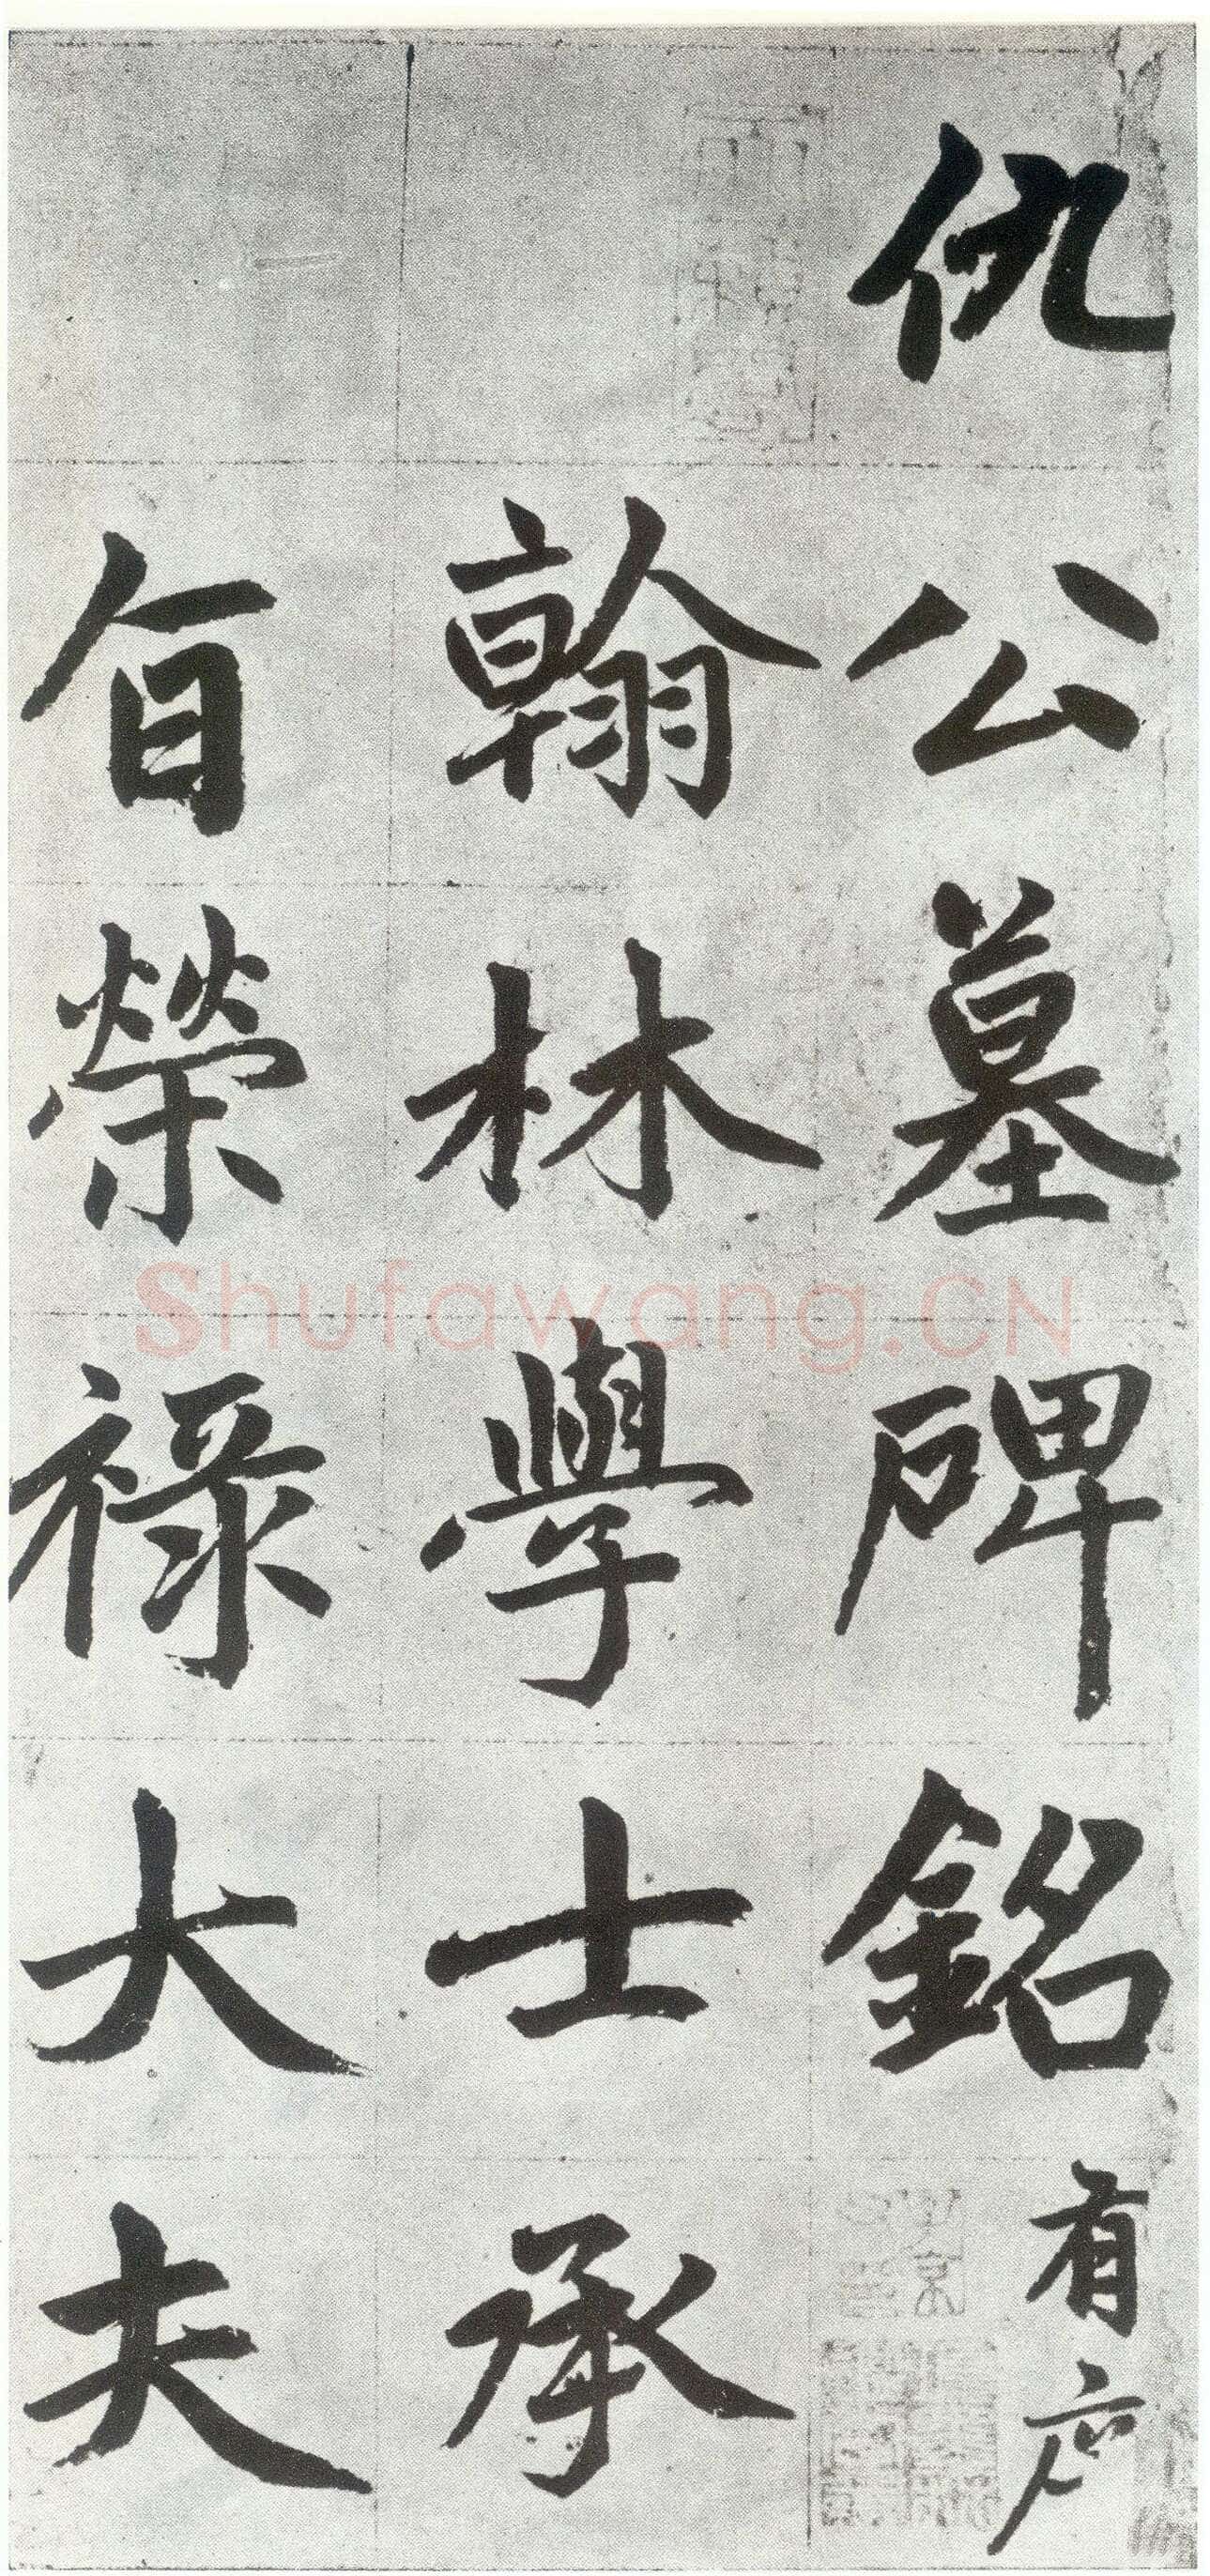 仇公墓碑銘有序
翰林學士承
旨榮祿大夫
Shufawang.CN